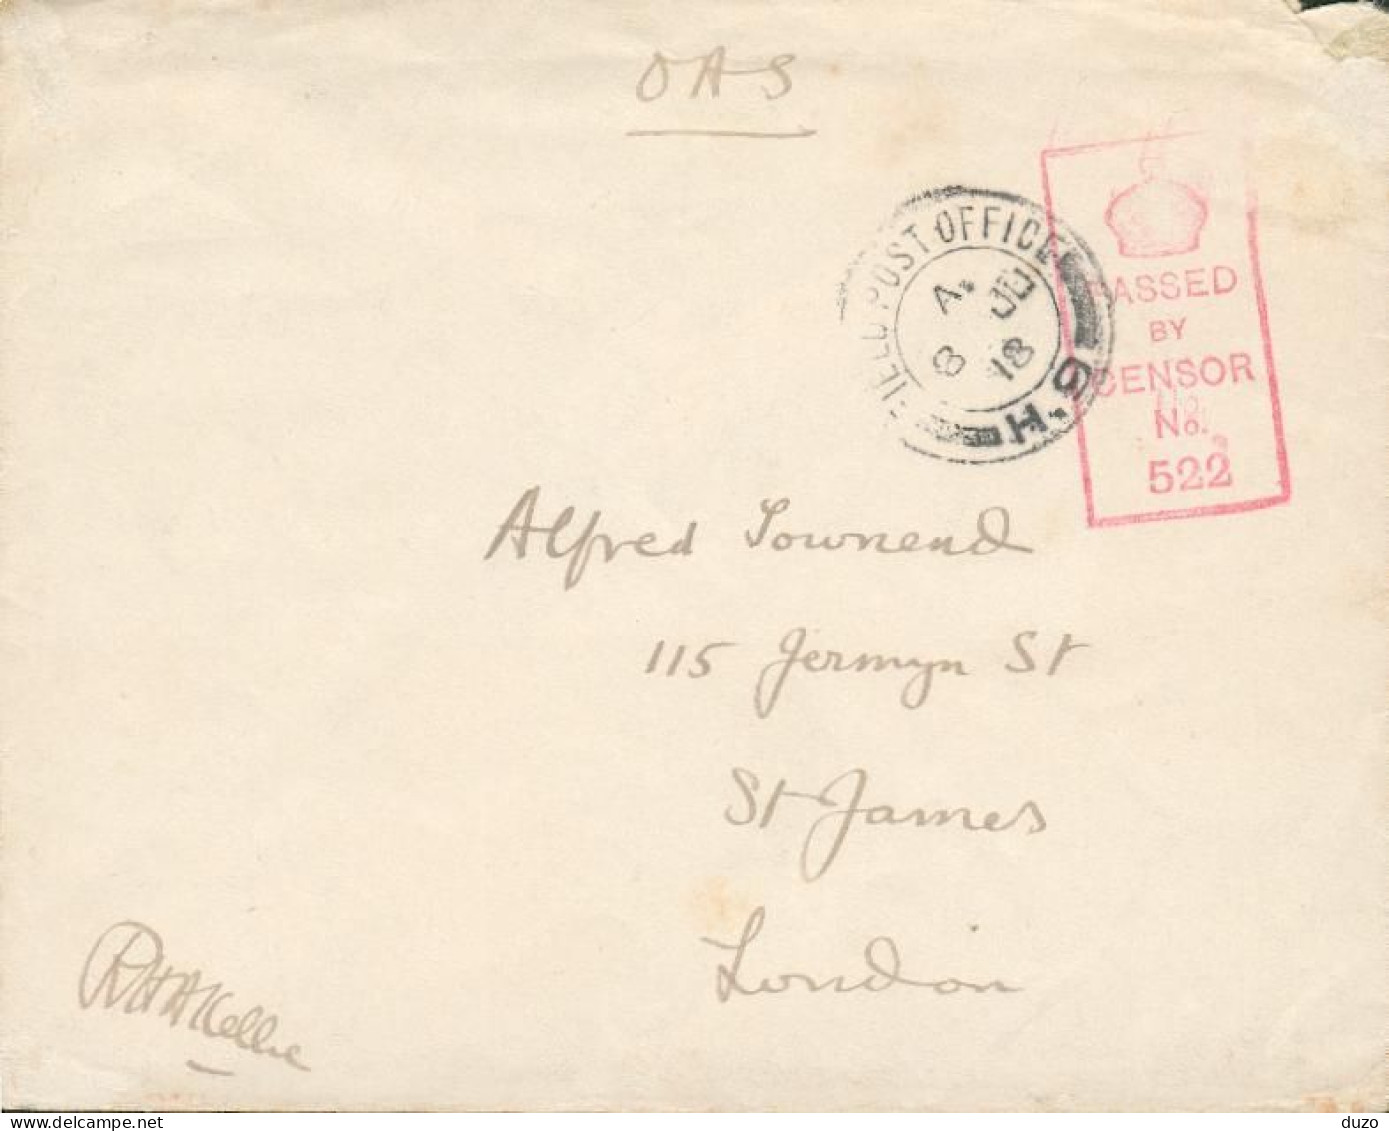 OAS
FIELD POST OFFICE
H.9
A.
8 JU
18
PASSED
BY
CENSOR
No.
522
Alfred Townend
115 Jermyn St
St James
London
RHAKellie
delcampe.net
duzo